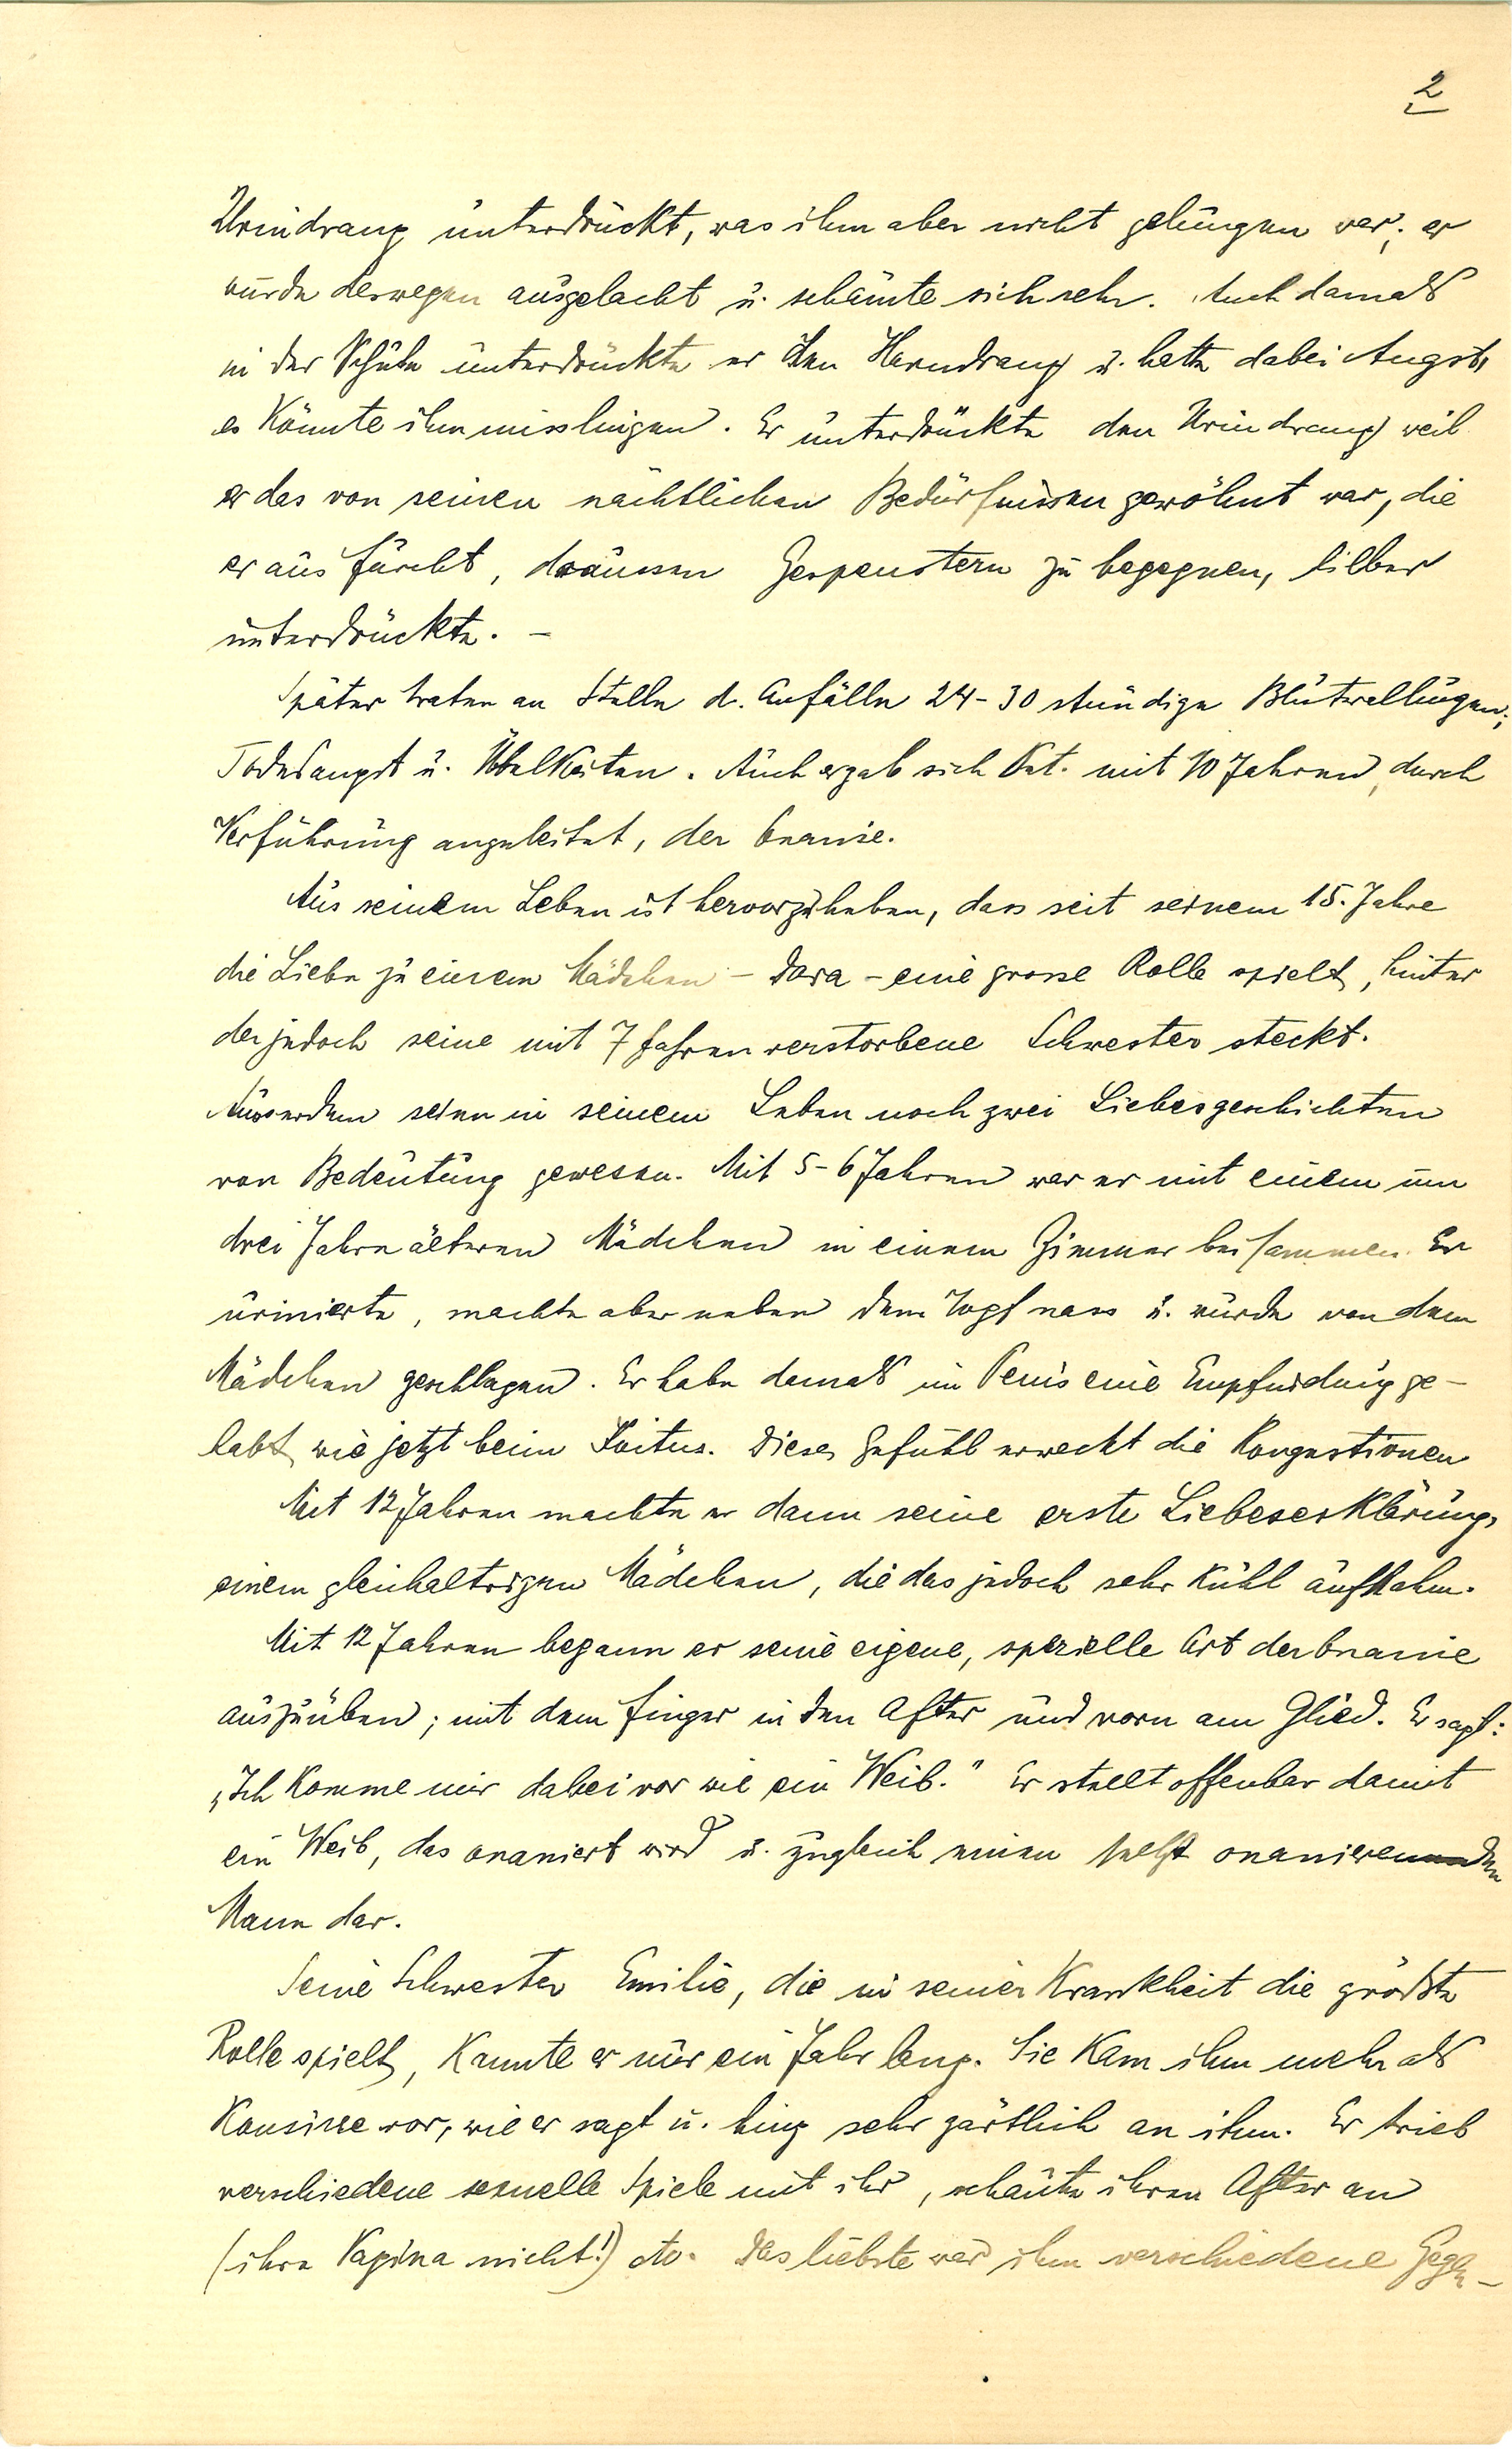 2
Urindrang unterdrückt, was ihm aber nicht gelungen war; er
wurde deswegen ausgelacht u. schämte sich sehr. Auch damals
in der Schule unterdrückte er den Harndrang u. hatte dabei Angst,
es könnte ihm misslingen. Er unterdrückte den Urindrang weil
er das von seinen nächtlichen Bedürfnissen gewöhnt war, die
er aus Furcht, draussen Gespenstern zu begegnen, lieber
unterdrückte. –
Später traten an Stelle d. Anfälle 24-30 stündige Blutwallungen,
Todesangst u. Übelkeiten. Auch ergab sich Pat. mit 10 Jahren, durch
Verführung angeleitet, der Onanie.
Aus seinem Leben ist hervorzuheben, dass seit seinem 15. Jahre
die Liebe zu einem Mädchen – Dora – eine grosse Rolle spielt, hinter
der jedoch seine mit 7 Jahren verstorbene Schwester steckt.
Ausserdem seien in seinem Leben noch zwei Liebesgeschichten
von Bedeutung gewesen. Mit 5-6 Jahren war er mit einem um
drei Jahre älteren Mädchen in einem Zimmer beisammen. Er
urinierte, machte aber neben dem Topf nass u. wurde von dem
Mädchen geschlagen. Er habe damals im Penis eine Empfindung ge-
habt, wie jetzt beim Koitus. Dieses Gefühl erweckt die Kongestionen
Mit 12 Jahren machte er dann seine erste Liebeserklärung,
einem gleichaltrigen Mädchen, die das jedoch sehr kühl aufnahm.
Mit 12 Jahren begann er seine eigene, spezielle Art der Onanie
auszuüben; mit dem Finger in den After und vorn am Glied. Er sagt:
„Ich komme mir dabei vor wie ein Weib." Er stellt offenbar damit
ein Weib, das onaniert wird u. zugleich einen selbst onanierenden
Mann dar.
Seine Schwester Emilie, die in seiner Krankheit die größte
Rolle spielt, kannte er nur ein Jahr lang. Sie kam ihm mehr als
Kousine vor, wie er sagt u. hing sehr zärtlich an ihm. Er trieb
verschiedene sexuelle Spiele mit ihr, schaute ihren After an
(ihre Vagina nicht!) etc. Das liebste war ihm verschiedene Gegen-